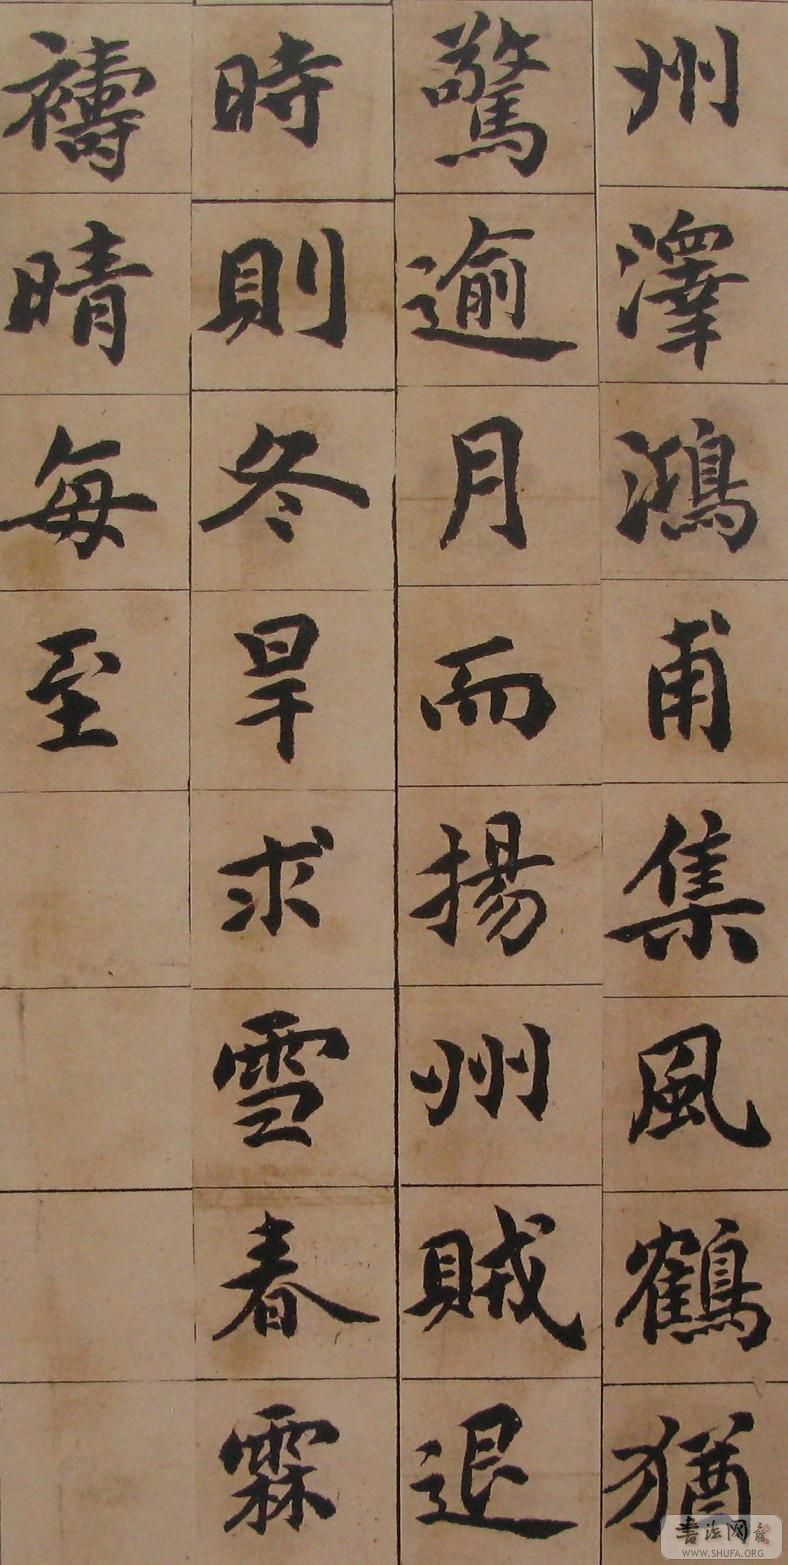 州澤鴻甫集風鶴猶
驚逾月而揚州賊退
時則冬旱求雪春霖
禱晴每至
書法网
WWW.SHUFA.ORG